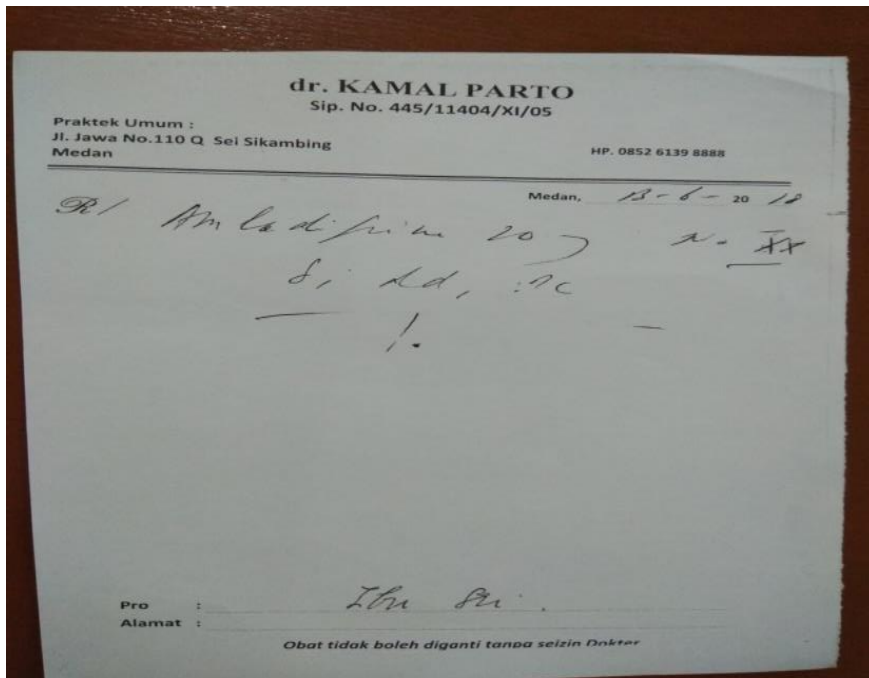 dr. KAMAL PARTO
Sip. No. 445/11404/XI/05
Praktek Umum :
Jl. Jawa No.110 Q Sei Sikambing
Medan
HP. 0852 6139 8888
Medan, 13 - 6 - 20 18
R/ 20 No. XX
1.
Pro : Ibu Sri.
Alamat :
Obat tidak boleh diganti tanpa seizin Dokter